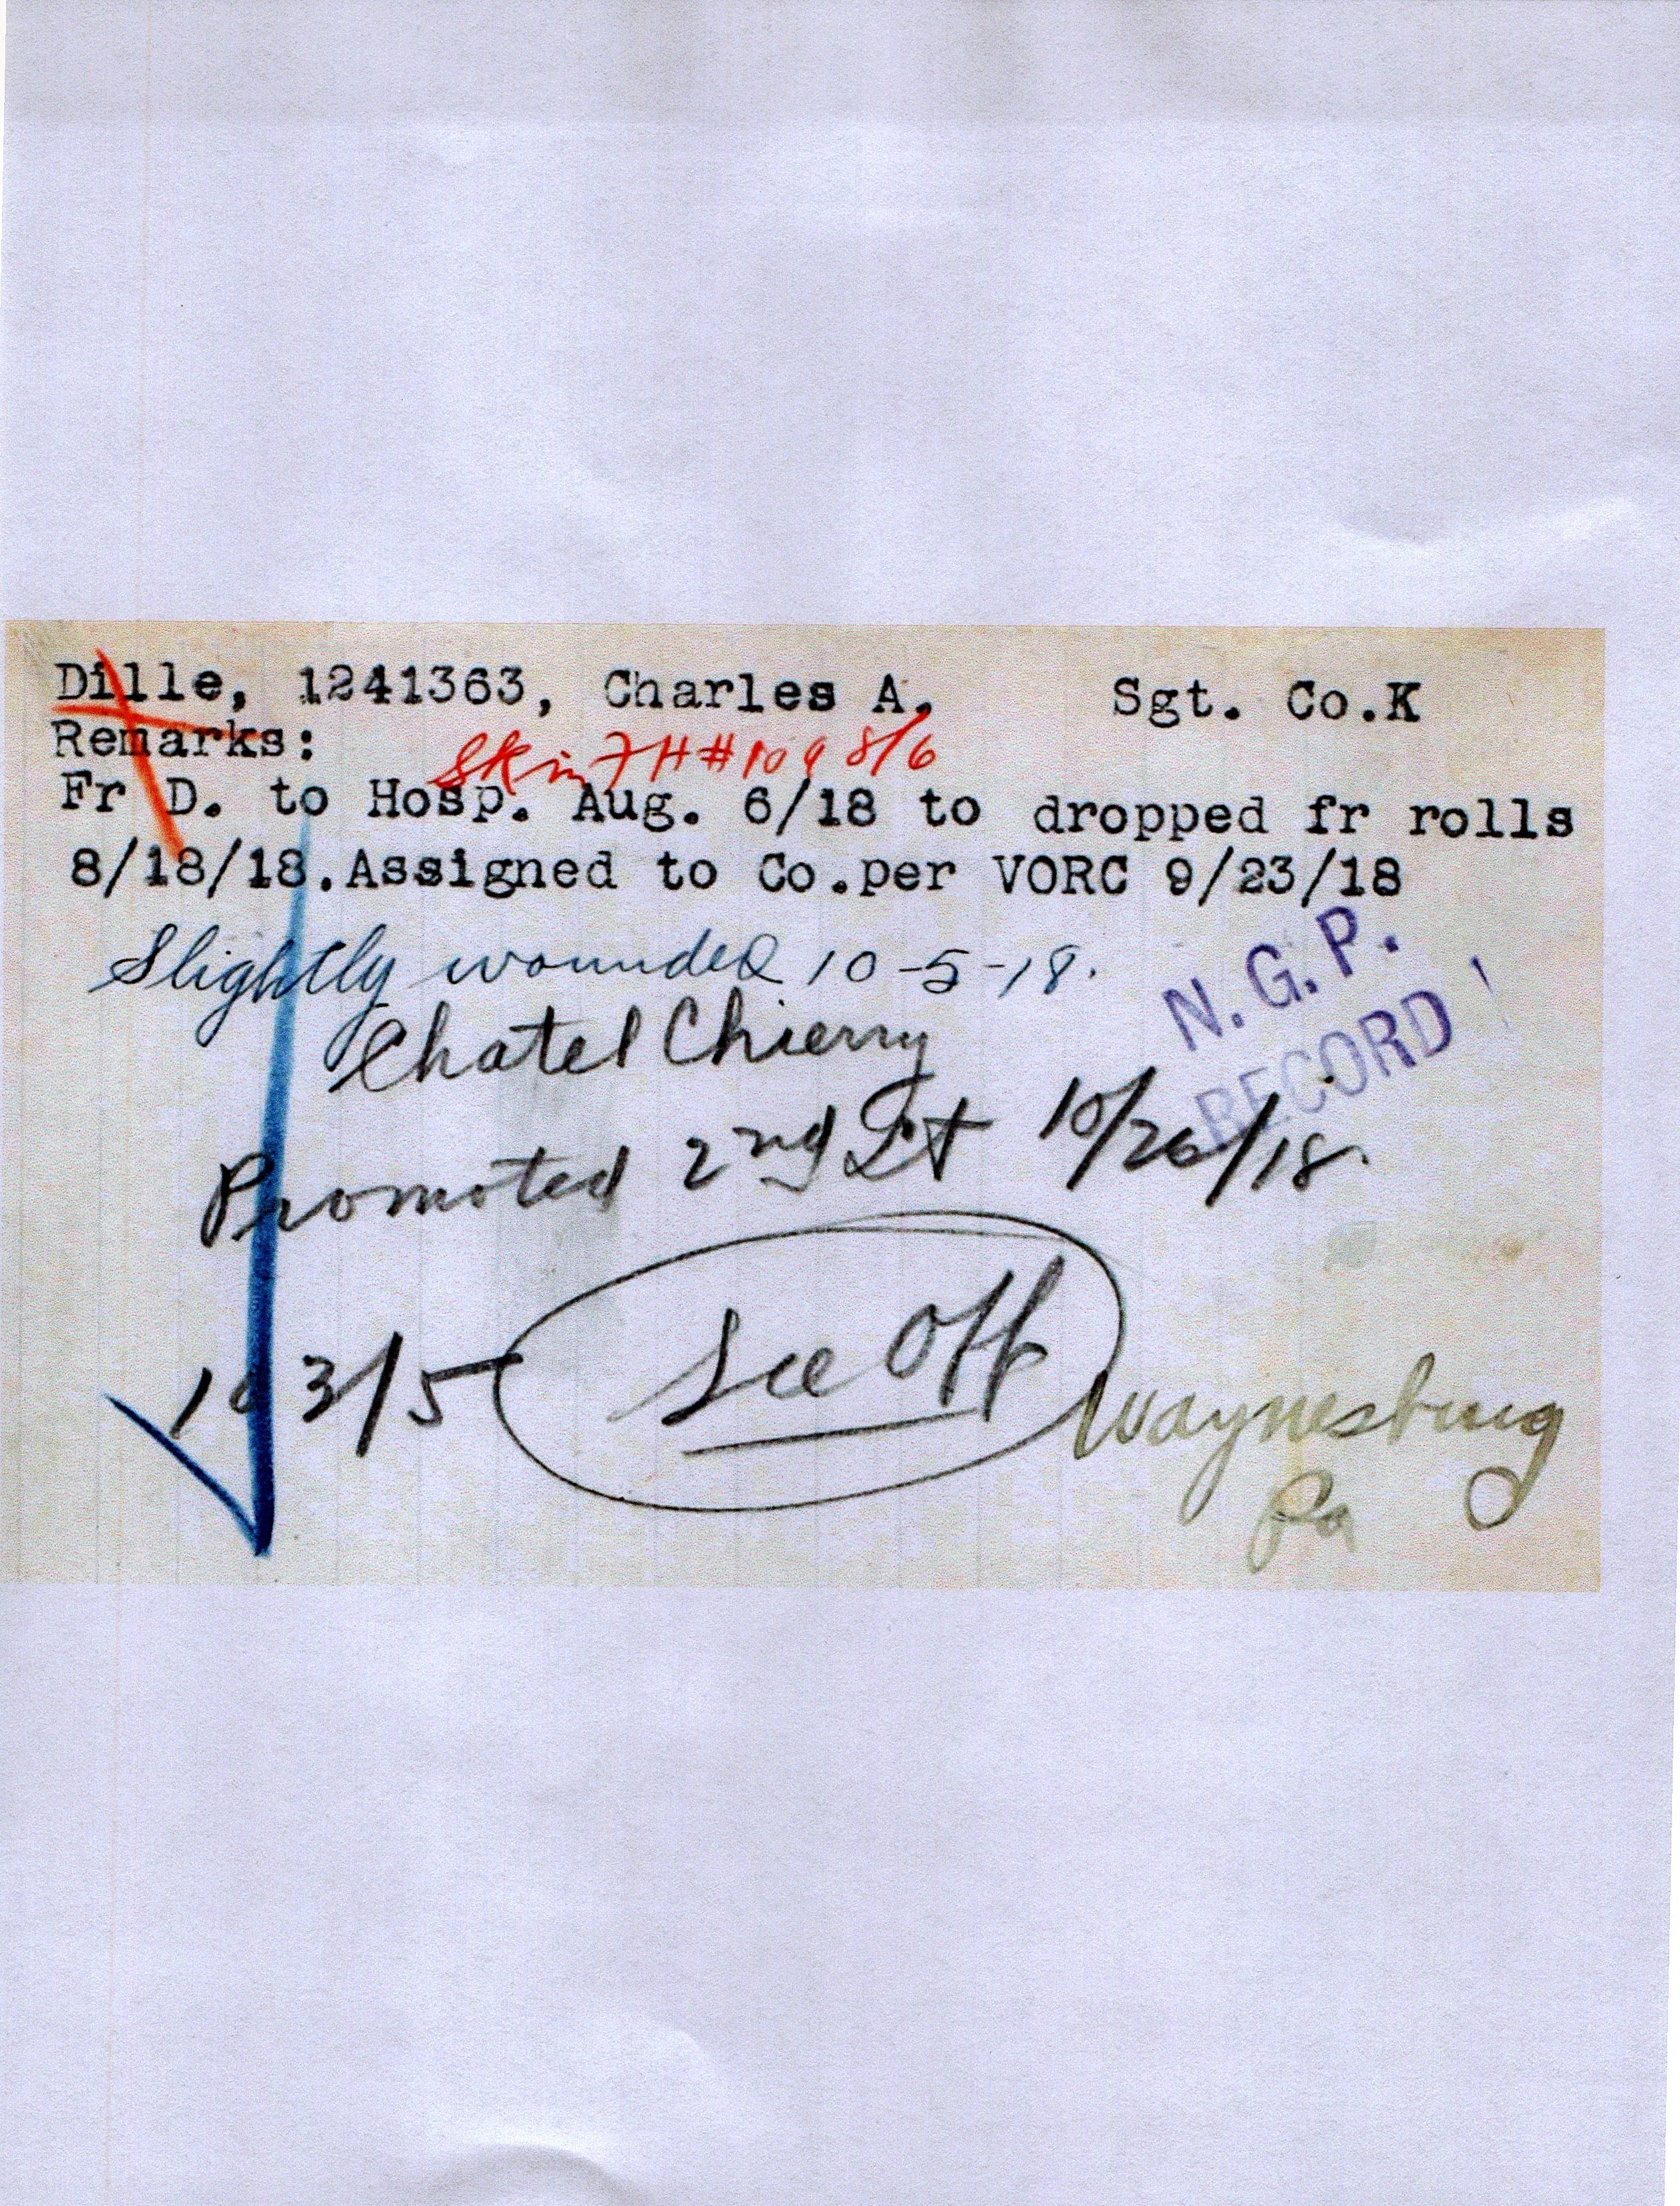 Dille, 1241363, Charles A. Sgt. Co.K
Remarks:
Skin FH #109 8/6
Fr D. to Hosp. Aug. 6/18 to dropped fr rolls
8/18/18. Assigned to Co.per VORC 9/23/18
Slightly wounded 10-5-18.
N. G. P.
RECORD
Chatel Chierry
Promoted 2nd Lt 10/26/18.
3/5
See Off
Waynesburg
Pa